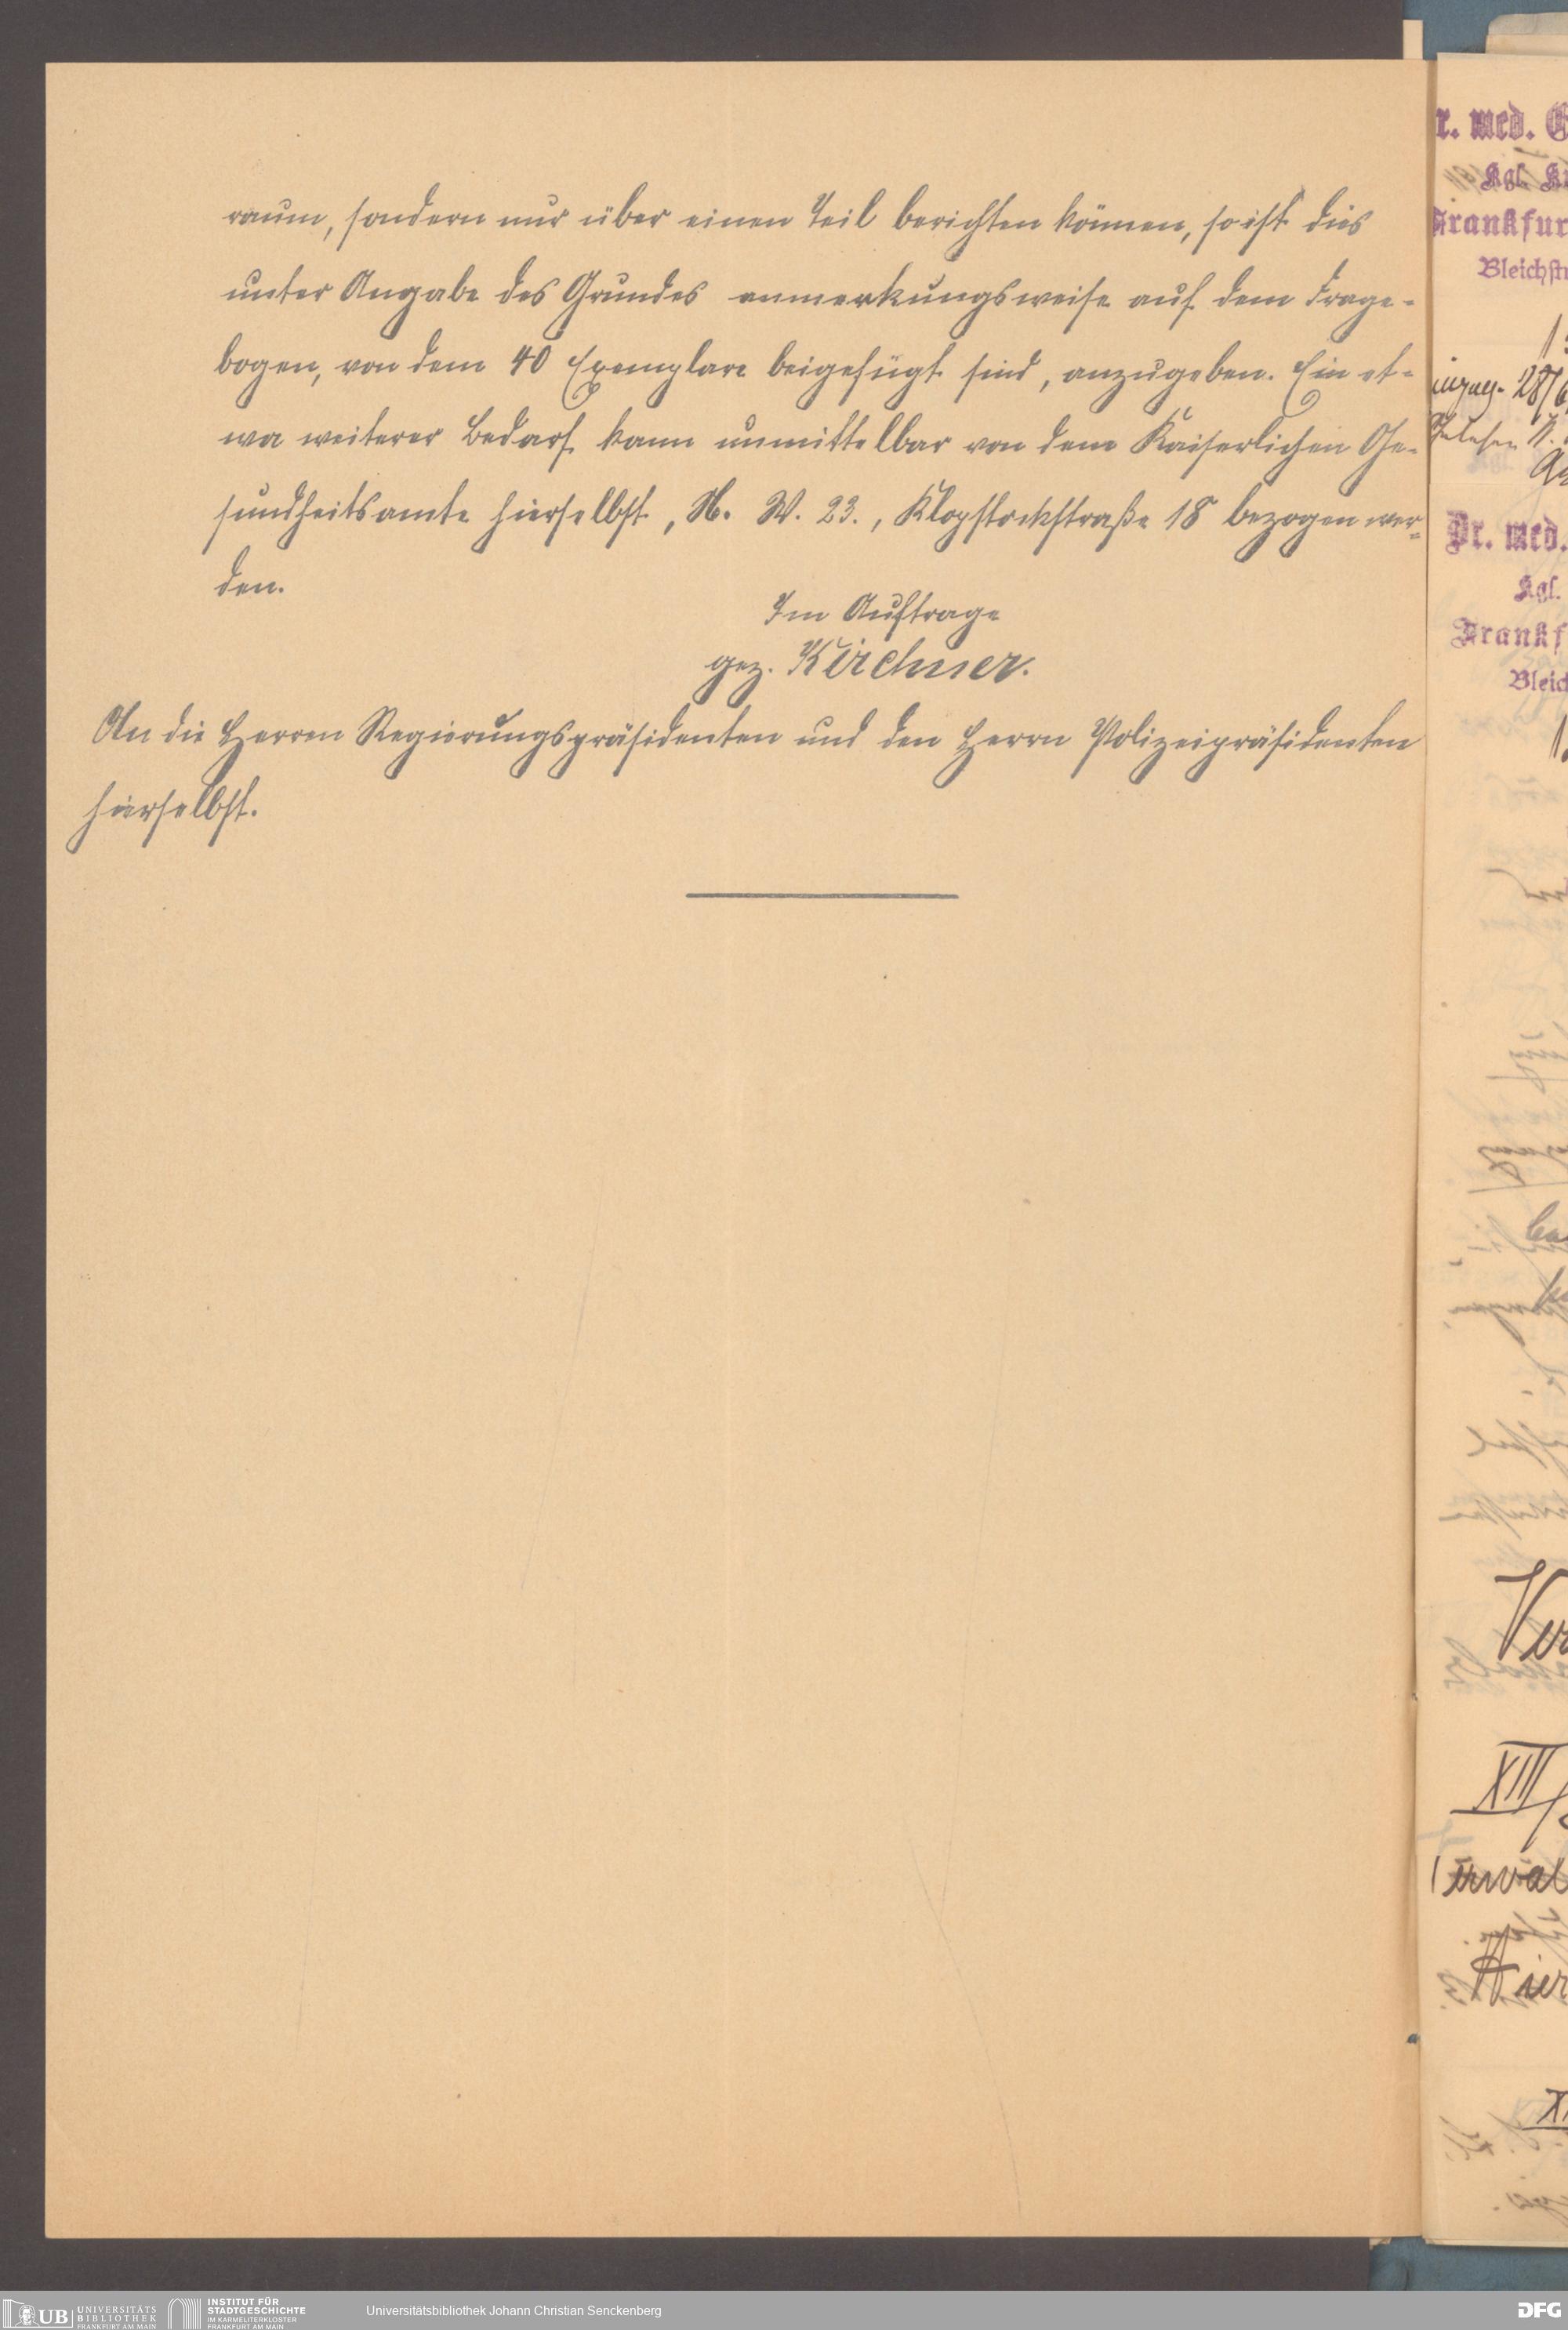 raum, sondern nur über einen Teil berichten können, so ist dies
unter Angabe des Grundes anmerkungsweise auf dem Frage-
bogen, von dem 40 Exemplare beigefügt sind, anzugeben. Ein et-
wa weiterer Bedarf kann unmittelbar von dem Kaiserlichen Ge-
sundheitsamte hierselbst, N. W. 23., Klopstockstraße 18 bezogen wer-
den.
Im Auftrage
gez. Kirchner.
An die Herren Regierungspräsidenten und den Herrn Polizeipräsidenten
hierselbst.
r. med.
Kgl.
Frankfur
Bleichstr
28/6
Dr. med.
Kgl.
Frankf
Bleic
XIII
Hier
UB UNIVERSITÄTS
BIBLIOTHEK
FRANKFURT AM MAIN
INSTITUT FÜR
STADTGESCHICHTE
IM KARMELITERKLOSTER
FRANKFURT AM MAIN
Universitätsbibliothek Johann Christian Senckenberg
DFG